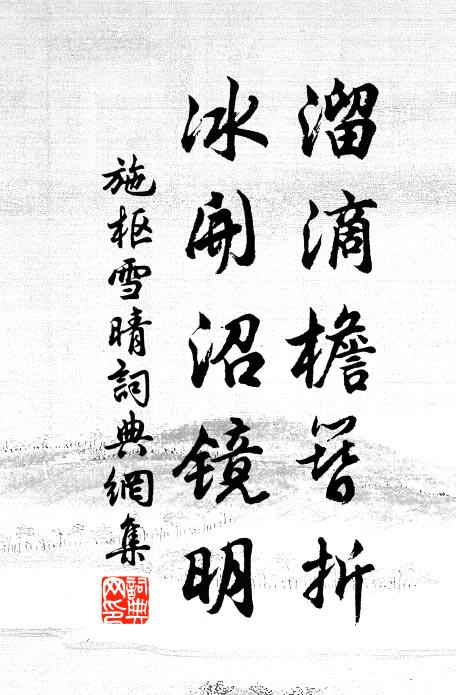 溜滴檐簪折
冰開沼鏡明
施枢雪晴詞典網集